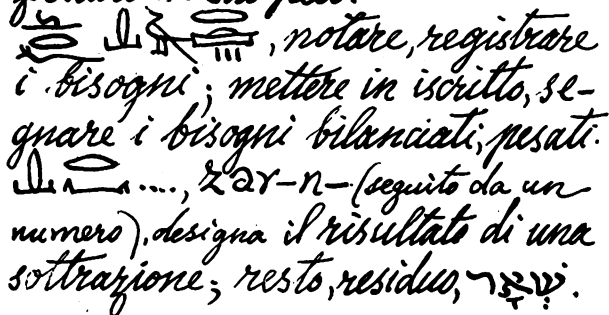 , notare, registrare
i bisogni; mettere in iscritto, se-
gnare i bisogni bilanciati, pesati.
...., zar-n-(seguito da un
numero), designa il risultato di una
sottrazione; resto, residuo, שְׁאָר.